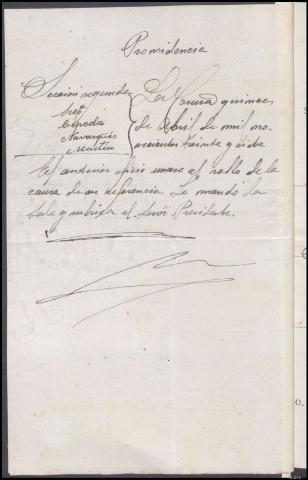 Providencia
Sección segunda
Sres
Cepeda
Navarques
Martin
La Coruña quince
de Abril de mil no-
vecientos treinta y ocho
El anterior oficio unase al rollo de la
causa de su referencia. Lo mandó la
Sala y rubrica el Señor Presidente.